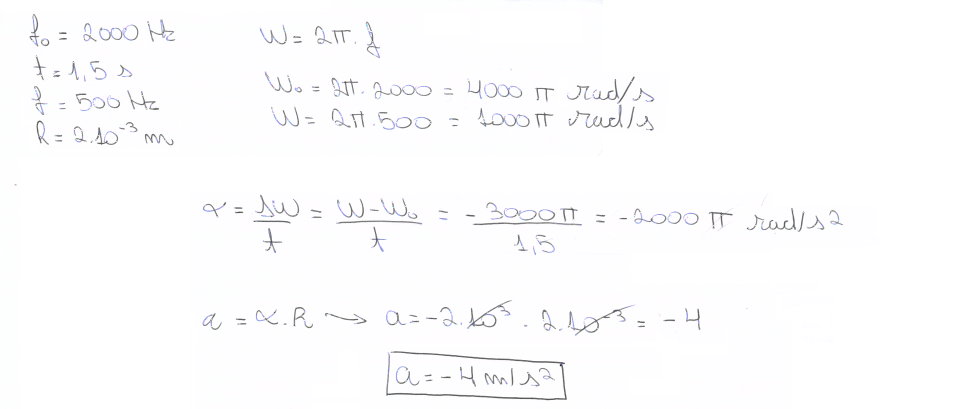 f₀ = 2000 Hz
t = 1,5 s
f = 500 Hz
R = 2.10⁻³ m
W = 2π. f
W₀ = 2π. 2000 = 4000 π rad/s
W = 2π.500 = 1000π rad/s
α = ΔW/t = W-W₀/t = - 3000π/1,5 = -2000 π rad/s2
a = α.R → a = -2.10³ . 2.10⁻³ = -4
a = -4 m/s²